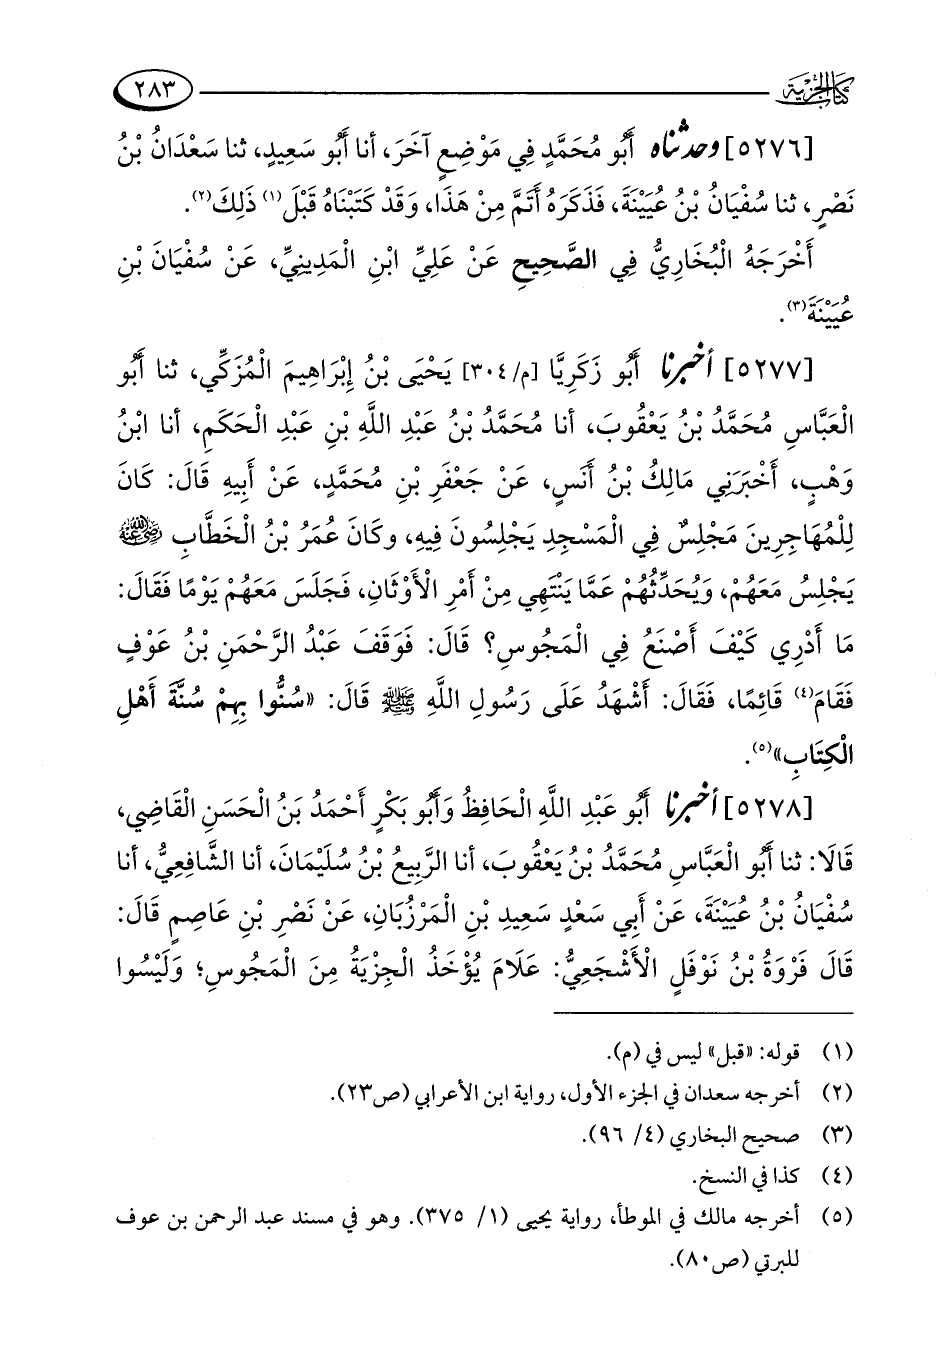 كتاب الجزية
٢٨٣
[٥٢٧٦] وحدثناه أَبُو مُحَمَّدٍ فِي مَوْضِعٍ آخَرَ، أنا أَبُو سَعِيدٍ، ثنا سَعْدَانُ بْنُ
نَصْرٍ، ثنا سُفْيَانُ بْنُ عُيَيْنَةَ، فَذَكَرَهُ أَتَمَّ مِنْ هَذَا، وَقَدْ كَتَبْنَاهُ قَبْلَ(١) ذَلِكَ(٢).
أَخْرَجَهُ الْبُخَارِيُّ فِي الصَّحِيحِ عَنْ عَلِيِّ ابْنِ الْمَدِينِيِّ، عَنْ سُفْيَانَ بْنِ
عُيَيْنَةَ(٣).
[٥٢٧٧] أخبرنا أَبُو زَكَرِيَّا [م/٣٠٤] يَحْيَى بْنُ إِبْرَاهِيمَ الْمُزَكِّي، ثنا أَبُو
الْعَبَّاسِ مُحَمَّدُ بْنُ يَعْقُوبَ، أنا مُحَمَّدُ بْنُ عَبْدِ اللَّهِ بْنِ عَبْدِ الْحَكَمِ، أنا ابْنُ
وَهْبٍ، أَخْبَرَنِي مَالِكُ بْنُ أَنَسٍ، عَنْ جَعْفَرِ بْنِ مُحَمَّدٍ، عَنْ أَبِيهِ قَالَ: كَانَ
لِلْمُهَاجِرِينَ مَجْلِسٌ فِي الْمَسْجِدِ يَجْلِسُونَ فِيهِ، وكَانَ عُمَرُ بْنُ الْخَطَّابِ رضي الله عنه
يَجْلِسُ مَعَهُمْ، وَيُحَدِّثُهُمْ عَمَّا يَنْتَهِي مِنْ أَمْرِ الْأَوْثَانِ، فَجَلَسَ مَعَهُمْ يَوْمًا فَقَالَ:
مَا أَدْرِي كَيْفَ أَصْنَعُ فِي الْمَجُوسِ؟ قَالَ: فَوَقَفَ عَبْدُ الرَّحْمَنِ بْنُ عَوْفٍ
فَقَامَ(٤) قَائِمًا، فَقَالَ: أَشْهَدُ عَلَى رَسُولِ اللَّهِ ﷺ قَالَ: «سُنُّوا بِهِمْ سُنَّةَ أَهْلِ
الْكِتَابِ»(٥).
[٥٢٧٨] أخبرنا أَبُو عَبْدِ اللَّهِ الْحَافِظُ وَأَبُو بَكْرٍ أَحْمَدُ بَنُ الْحَسَنِ الْقَاضِي،
قَالَا: ثنا أَبُو الْعَبَّاسِ مُحَمَّدُ بْنُ يَعْقُوبَ، أنا الرَّبِيعُ بْنُ سُلَيْمَانَ، أنا الشَّافِعِيُّ، أنا
سُفْيَانُ بْنُ عُيَيْنَةَ، عَنْ أَبِي سَعْدٍ سَعِيدِ بْنِ الْمَرْزُبَانِ، عَنْ نَصْرِ بْنِ عَاصِمٍ قَالَ:
قَالَ فَرْوَةُ بْنُ نَوْفَلٍ الْأَشْجَعِيُّ: عَلَامَ يُؤْخَذُ الْجِزْيَةُ مِنَ الْمَجُوسِ؛ وَلَيْسُوا
(١) قوله: «قبل» ليس في (م).
(٢) أخرجه سعدان في الجزء الأول، رواية ابن الأعرابي (ص٢٣).
(٣) صحيح البخاري (٤/ ٩٦).
(٤) كذا في النسخ.
(٥) أخرجه مالك في الموطأ، رواية يحيى (١/ ٣٧٥). وهو في مسند عبد الرحمن بن عوف
للبرتي (ص٨٠).